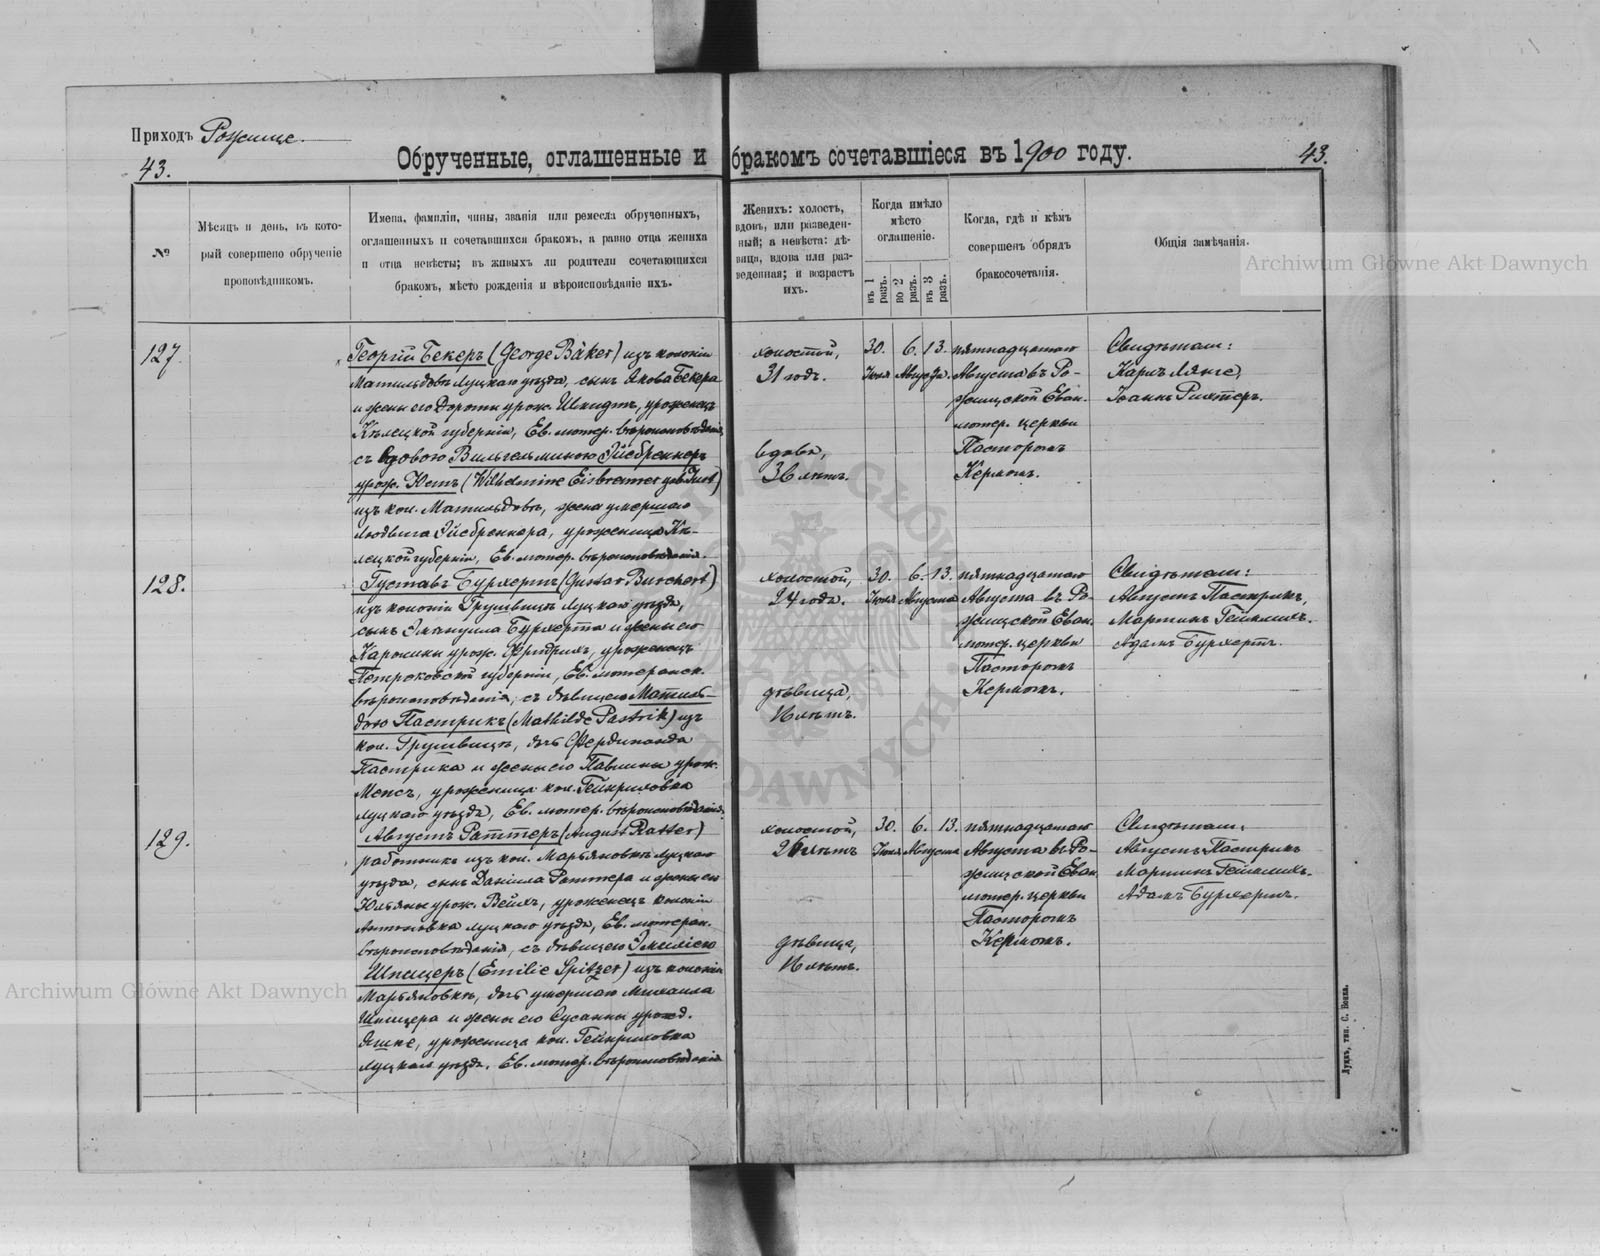 Приходъ Рожище.
43.
Обрученные, оглашенные и бракомъ сочетавшіеся въ 1900 году.
43.
№
Мѣсяцъ и день, въ кото-
рый совершено обрученіе
проповѣдникомъ.
Имена, фамиліи, чины, званія или ремесла обрученныхъ,
оглашенныхъ и сочетавшихся бракомъ, а равно отца жениха
и отца невѣсты; въ живыхъ ли родители сочетающихся
бракомъ, мѣсто рожденія и вѣроисповѣданіе ихъ.
Женихъ: холостъ,
вдовъ, или разведен-
ный; а невѣста: дѣ-
вица, вдова или раз-
веденная; и возрастъ
ихъ.
Когда имѣло
мѣсто
оглашеніе.
въ 1 разъ.
во 2 разъ.
въ 3 разъ.
Когда, гдѣ и кѣмъ
совершенъ обрядъ
бракосочетанія.
Общія замѣчанія.
Archiwum Główne Akt Dawnych
127.
Георгій Бекеръ (George Bäker) изъ колоніи
Матильдовъ Луцкаго уѣзда, сынъ Якова Бекера
и жены его Дороты урож. Шмидтъ, уроженецъ
Кѣлецкой губерніи, Ев. лютер. вѣроисповѣданія,
съ вдовою Вильгельминою Эйсбреннеръ
урож. Юстъ (Wilhelmine Eisbrenner geb. Just)
изъ кол. Матильдовъ, жена умершаго
Людвига Эйсбреннера, уроженица Кѣ-
лецкой губерніи, Ев. лютер. вѣроисповѣданія.
холостой,
31 годъ.
вдова,
36 лѣтъ.
30. 6. 13.
Іюля Августа.
пятнадцатаго
Августа въ Ро-
жищской Еван.
лютер. церкви
Пасторомъ
Кермомъ.
Свидѣтели:
Карлъ Лянге,
Іоаннъ Рихтеръ.
128.
Густавъ Бурхертъ (Gustav Burchert)
изъ колоніи Грушвицъ Луцкаго уѣзда,
сынъ Эмануила Бурхерта и жены его
Каролины урож. Фридрихъ, уроженецъ
Петроковской губерніи, Ев. лютеранск.
вѣроисповѣданія, съ дѣвицею Матиль-
дою Пастрикъ (Mathilde Pastrik) изъ
кол. Грушвицъ, дочь Фердинанда
Пастрика и жены его Павлины урож.
Менсъ, уроженица кол. Гейнриховка
Луцкаго уѣзда, Ев. лютер. вѣроисповѣданія.
холостой,
24 года.
дѣвица,
18 лѣтъ.
30. 6. 13.
Іюля Августа
пятнадцатаго
Августа въ Ро-
жищской Еван.
лютер. церкви
Пасторомъ
Кермомъ.
Свидѣтели:
Августъ Пастрикъ,
Мартинъ Геймлихъ.
Адамъ Бурхертъ.
129.
Августъ Раттеръ (August Ratter)
работникъ изъ кол. Марьяновкѣ Луцкаго
уѣзда, сынъ Даніила Раттера и жены его
Юліаны урож. Вейхъ, уроженецъ колоніи
Антоновка Луцкаго уѣзда, Ев. лютеран.
вѣроисповѣданія, съ дѣвицею Эмиліею
Шпицеръ (Emilie Spitzer) изъ колоніи
Марьяновкѣ, дочь умершаго Михаила
Шпицера и жены его Сусанны урожд.
Яшке, уроженица кол. Гейнриховка
Луцкаго уѣзда, Ев. лютер. вѣроисповѣданія
холостой,
26 лѣтъ
дѣвица,
18 лѣтъ.
30. 6. 13.
Іюля Августа
пятнадцатаго
Августа въ Ро-
жищской Еван.
лютер. церкви
Пасторомъ
Кермомъ.
Свидѣтели:
Августъ Пастрикъ
Мартинъ Геймлихъ.
Адамъ Бурхертъ.
Archiwum Główne Akt Dawnych